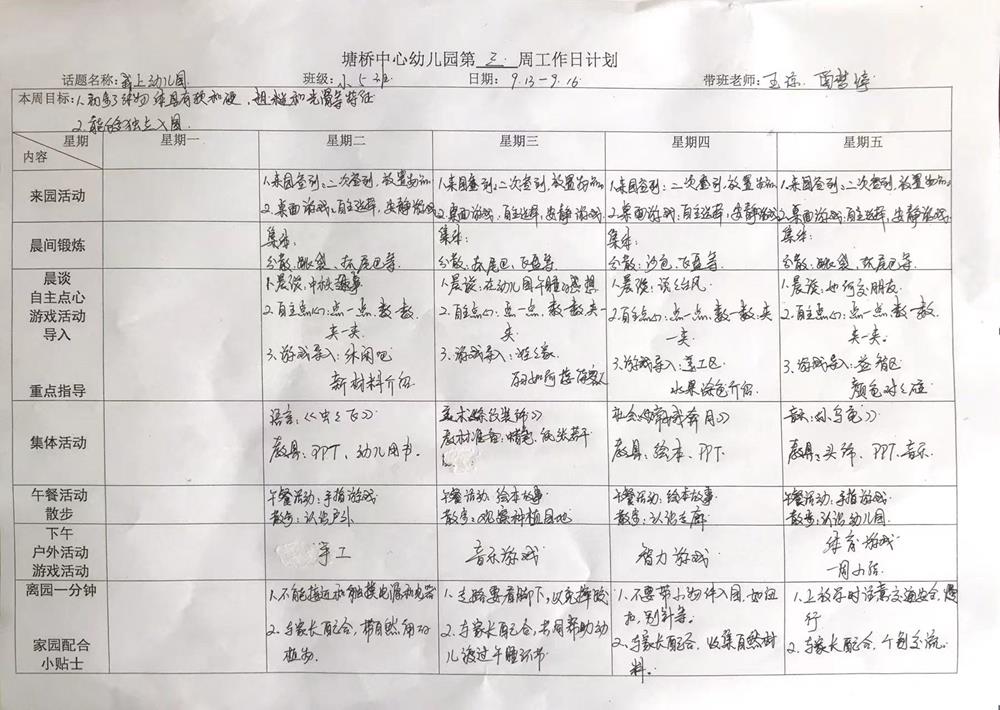 塘桥中心幼儿园第 三 周工作日计划
话题名称：我上幼儿园 班级：小5班 日期：9.13-9.16 带班老师：王
本周目标：1.初步了解物体具有软和硬、粗糙和光滑等特征
2.能够独立入园.
星期 星期一 星期二 星期三 星期四 星期五
内容
来园活动
1.来园签到：二次签到，放置物品. 1.来园签到：二次签到，放置物品. 1.来园签到：二次签到，放置物品. 1.来园签到：二次签到，放置物品.
2.桌面游戏：自主选择，安静游戏 2.桌面游戏：自主选择，安静游戏. 2.桌面游戏：自主选择，安静游戏 2.桌面游戏：自主选择，安静游戏
晨间锻炼
集体： 集体： 集体： 集体：
分散：、抓尾巴等. 分散：抓尾巴、飞盘等. 分散：沙包、飞盘等. 分散：、抓尾巴等.
晨谈
自主点心
游戏活动
导入
重点指导
1.晨谈：中秋趣事
2.自主点心：点一点、数一数、
夹一夹
3.游戏导入：休闲吧
新材料介绍
1.晨谈：在幼儿园午睡的感想
2.自主点心：点一点、数一数、夹一
夹
3.游戏导入：娃娃家
如何接待客人
1.晨谈：谈谈台风
2.自主点心：点一点、数一数、夹
一夹
3.游戏导入：美工区
水果涂色介绍.
1.晨谈：如何交朋友.
2.自主点心：点一点、数一数、
夹一夹.
3.游戏导入：益智区
颜色对对碰
集体活动
语言：《虫虫飞》
教具：PPT、幼儿用书.
美术：装饰》
教材准备：蜡笔、纸张若干
社会《我月》
教具：绘本、PPT.
音乐：《小乌龟》
教具：头饰、PPT、音乐
午餐活动
散步
午餐活动：手指游戏
散步：认识户外
午餐活动：绘本故事
散步：观察种植园地
午餐活动：绘本故事
散步：认识走廊
午餐活动：手指游戏
散步：认识幼儿园.
下午
户外活动
游戏活动
手工
音乐游戏
智力游戏
体育游戏
一周小结.
离园一分钟
家园配合
小贴士
1.不能接近和触摸电源和电器
2.与家长配合，带自然角的
植物.
1.走路要看脚下，以免摔跤
2.与家长配合，共同帮助幼
儿渡过午睡环节
1.不要带小物件入园，如纽
扣、别针等.
2.与家长配合，收集自然材
料.
1.上放学时注意交通安全，慢
行
2.与家长配合，个别交流.